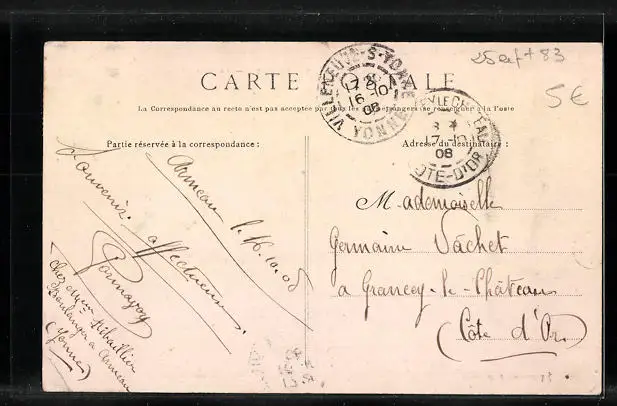 25 + 83
5€
CARTE POSTALE
La Correspondance au recto n'est pas acceptée par tous les étrangers se renseigner à la Poste
Partie réservée à la correspondance :
Adresse du destinataire :
VILLENEUVE-S-YONNE
16-10
08
YONNE
17-10
08
CÔTE-D'OR
Armeau le 16.10.08
Souvenir affectueux
Chez Mme
Boulanger à Armeau
(Yonne)
Mademoiselle
Germaine Vachet
a Grancey-le-Château
(Côte d'Or)